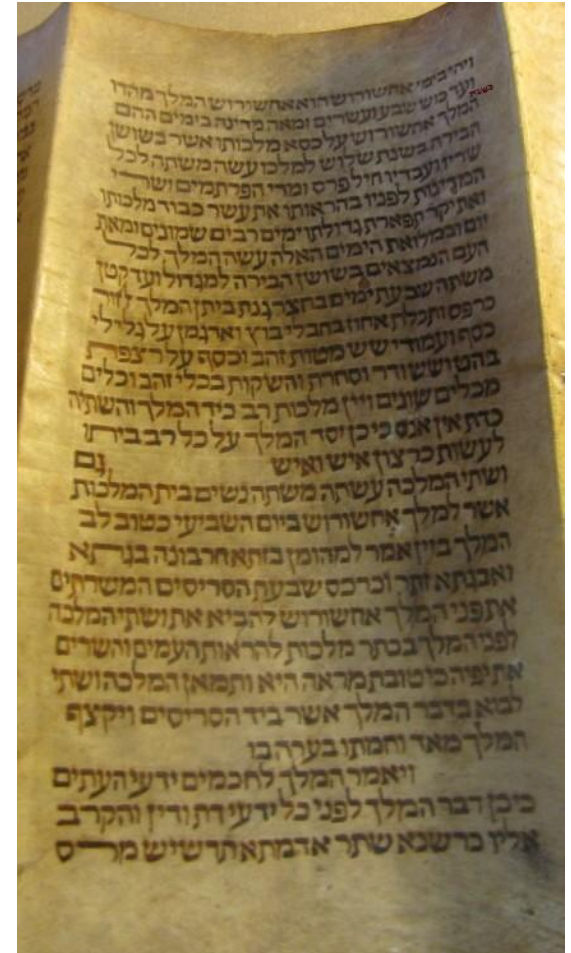 ויהי בימי אחשורוש הוא אחשורוש המלך מהדו
ועד כוש שבע ועשרים ומאה מדינה בימים ההם
כשבת
המלך אחשורוש על כסא מלכותו אשר בשושן
הבירה בשנת שלוש למלכו עשה משתה לכל
שריו ועבדיו חיל פרס ומדי הפרתמים ושרי
המדינות לפניו בהראותו את עשר כבוד מלכותו
ואת יקר תפארת גדולתו ימים רבים שמונים ומאת
יום ובמלואת הימים האלה עשה המלך לכל
העם הנמצאים בשושן הבירה למגדול ועד קטן
משתה שבעת ימים בחצר גנת ביתן המלך חור
כרפס ותכלת אחוז בחבלי בוץ וארגמן על גלילי
כסף ועמודי שש מטות זהב וכסף על רצפת
בהט ושש ודר וסחרת והשקות בכלי זהב וכלים
מכלים שונים ויין מלכות רב כיד המלך והשתיה
כדת אין אנס כי כן יסד המלך על כל רב ביתו
לעשות כרצון איש ואיש גם
ושתי המלכה עשתה משתה נשים בית המלכות
אשר למלך אחשורוש ביום השביעי כטוב לב
המלך ביין אמר למהומן בזתא חרבונה בגתא
ואבגתא זתר וכרכס שבעת הסריסים המשרתים
את פני המלך אחשורוש להביא את ושתי המלכה
לפני המלך בכתר מלכות להראות העמים והשרים
את יפיה כי טובת מראה היא ותמאן המלכה ושתי
לבוא בדבר המלך אשר ביד הסריסים ויקצף
המלך מאד וחמתו בערה בו
ויאמר המלך לחכמים ידעי העתים
כי כן דבר המלך לפני כל ידעי דת ודין והקרב
אליו כרשנא שתר אדמתא תרשיש מרס